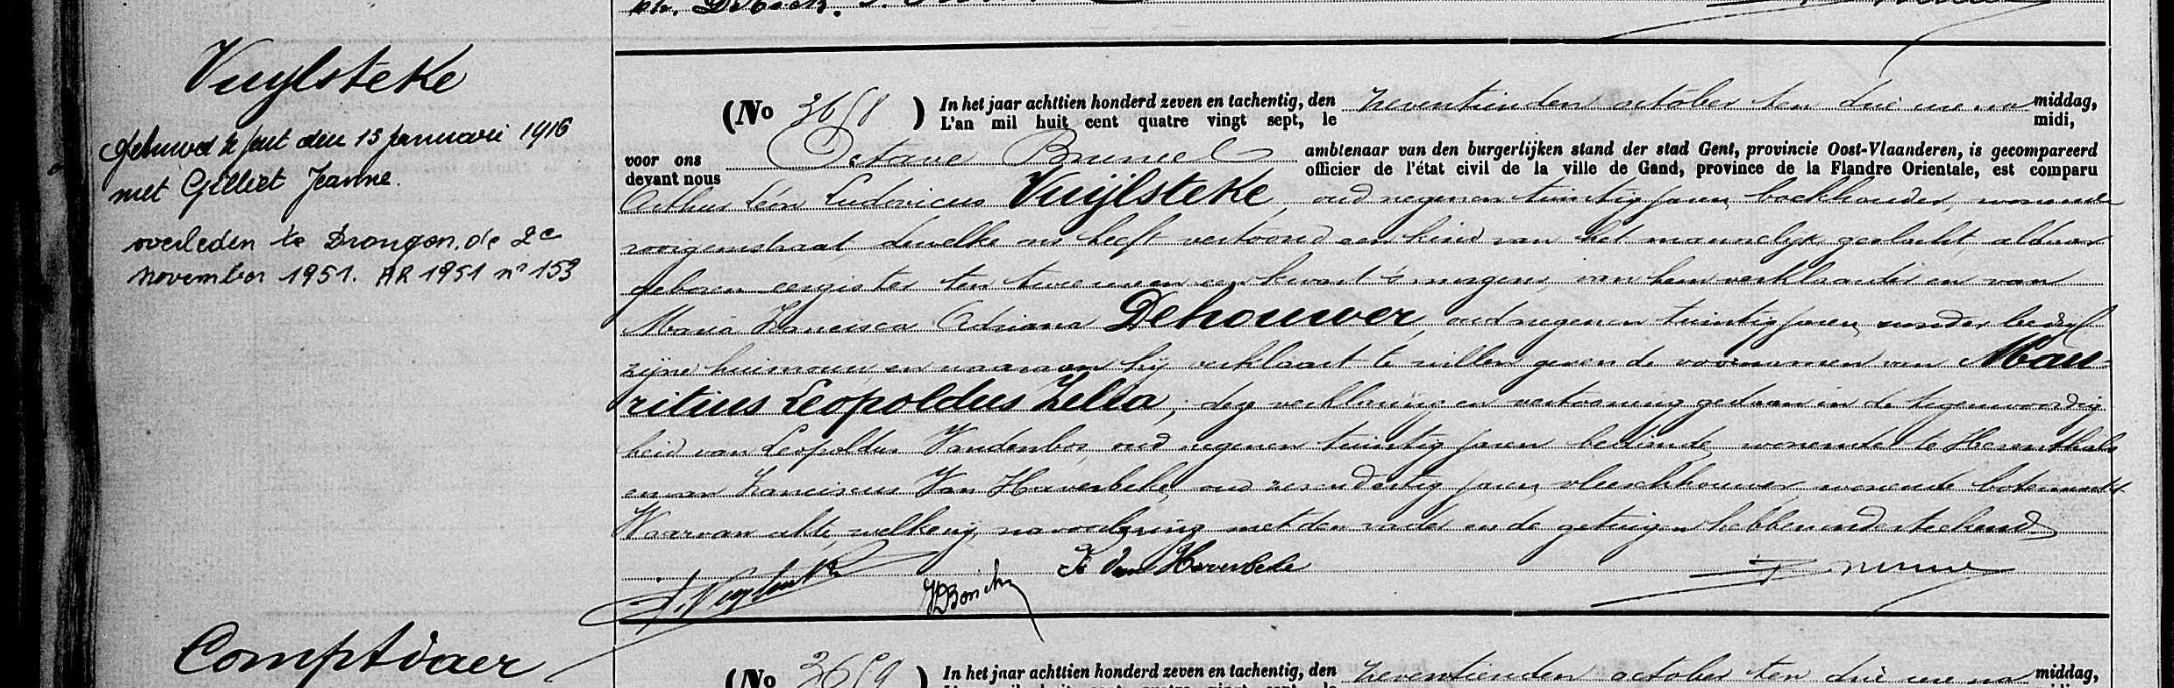 Vuylsteke
gehuwd te Gent den 15 januari 1916
met Gilliet Jeanne.
overleden te Drongen, de 2e
november 1951. AR 1951 n° 153
(No 3658) In het jaar achttien honderd zeven en tachentig, den zeventienden october ten drie ure na middag,
L'an mil huit cent quatre vingt sept, le midi,
voor ons Octave Bruneel ambtenaar van den burgerlijken stand der stad Gent, provincie Oost-Vlaanderen, is gecompareerd
devant nous officier de l'état civil de la ville de Gand, province de la Flandre Orientale, est comparu
Arthur Léon Ludovicus Vuijlsteke, oud negen en twintig jaren, boekhouder, wonende
dewelke ons heeft vertoond een kind van het mannelijk geslacht, aldaar
geboren eergister ten twee uren een kwart 's morgens van hem verklaarder en van
Maria Francisca Adriana Dehouwer, oud negen en twintig jaren, zonder bedrijf
zijne huisvrouw, en waaraan hij verklaart te willen geven de voornamen van Mau-
ritius Leopoldus Zelia; dez verklaring en vertooning gedaan in de tegenwoordig
heid van Leopoldus Vandenbos, oud negen en twintig jaren, bediende, wonende te Herenthals
en van Franciscus Van Haverbeke, oud zes en dertig jaren, vleeschhouwer, wonende botermarkt
Waarvan akte, welke wij, na voorlezing met den vader en de getuigen hebben onderteekend
A. Vuylsteke Fr Van Haverbeke Bruneel
Comptdaer
(No 3659) In het jaar achttien honderd zeven en tachentig, den zeventienden october ten drie ure na middag,